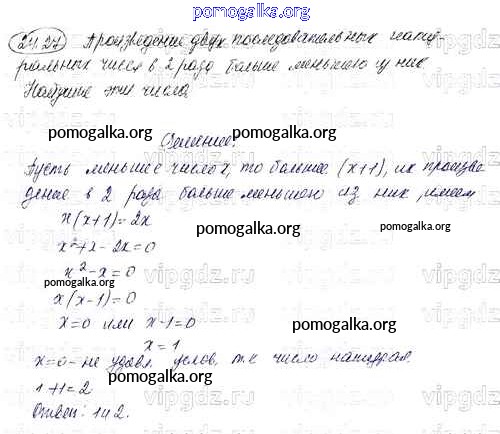 pomogalka.org
24.27 Произведение двух последовательных нату-
ральных чисел в 2 раза больше меньшего из них
Найдите эти числа
pomogalka.org
Решение:
pomogalka.org
Пусть меньшее число x, то большее (x+1), их произве
дение в 2 раза больше меньшего из них, имеем
x(x+1)=2x
pomogalka.org
pomogalka.org
x²+x-2x=0
vipgdz.ru
x²-x=0
pomogalka.org
x(x-1)=0
x=0 или x-1=0
pomogalka.org
x=1
x=0- не удовл. услов, т.к число натурал.
pomogalka.org
1+1=2
Ответ: 1 и 2.